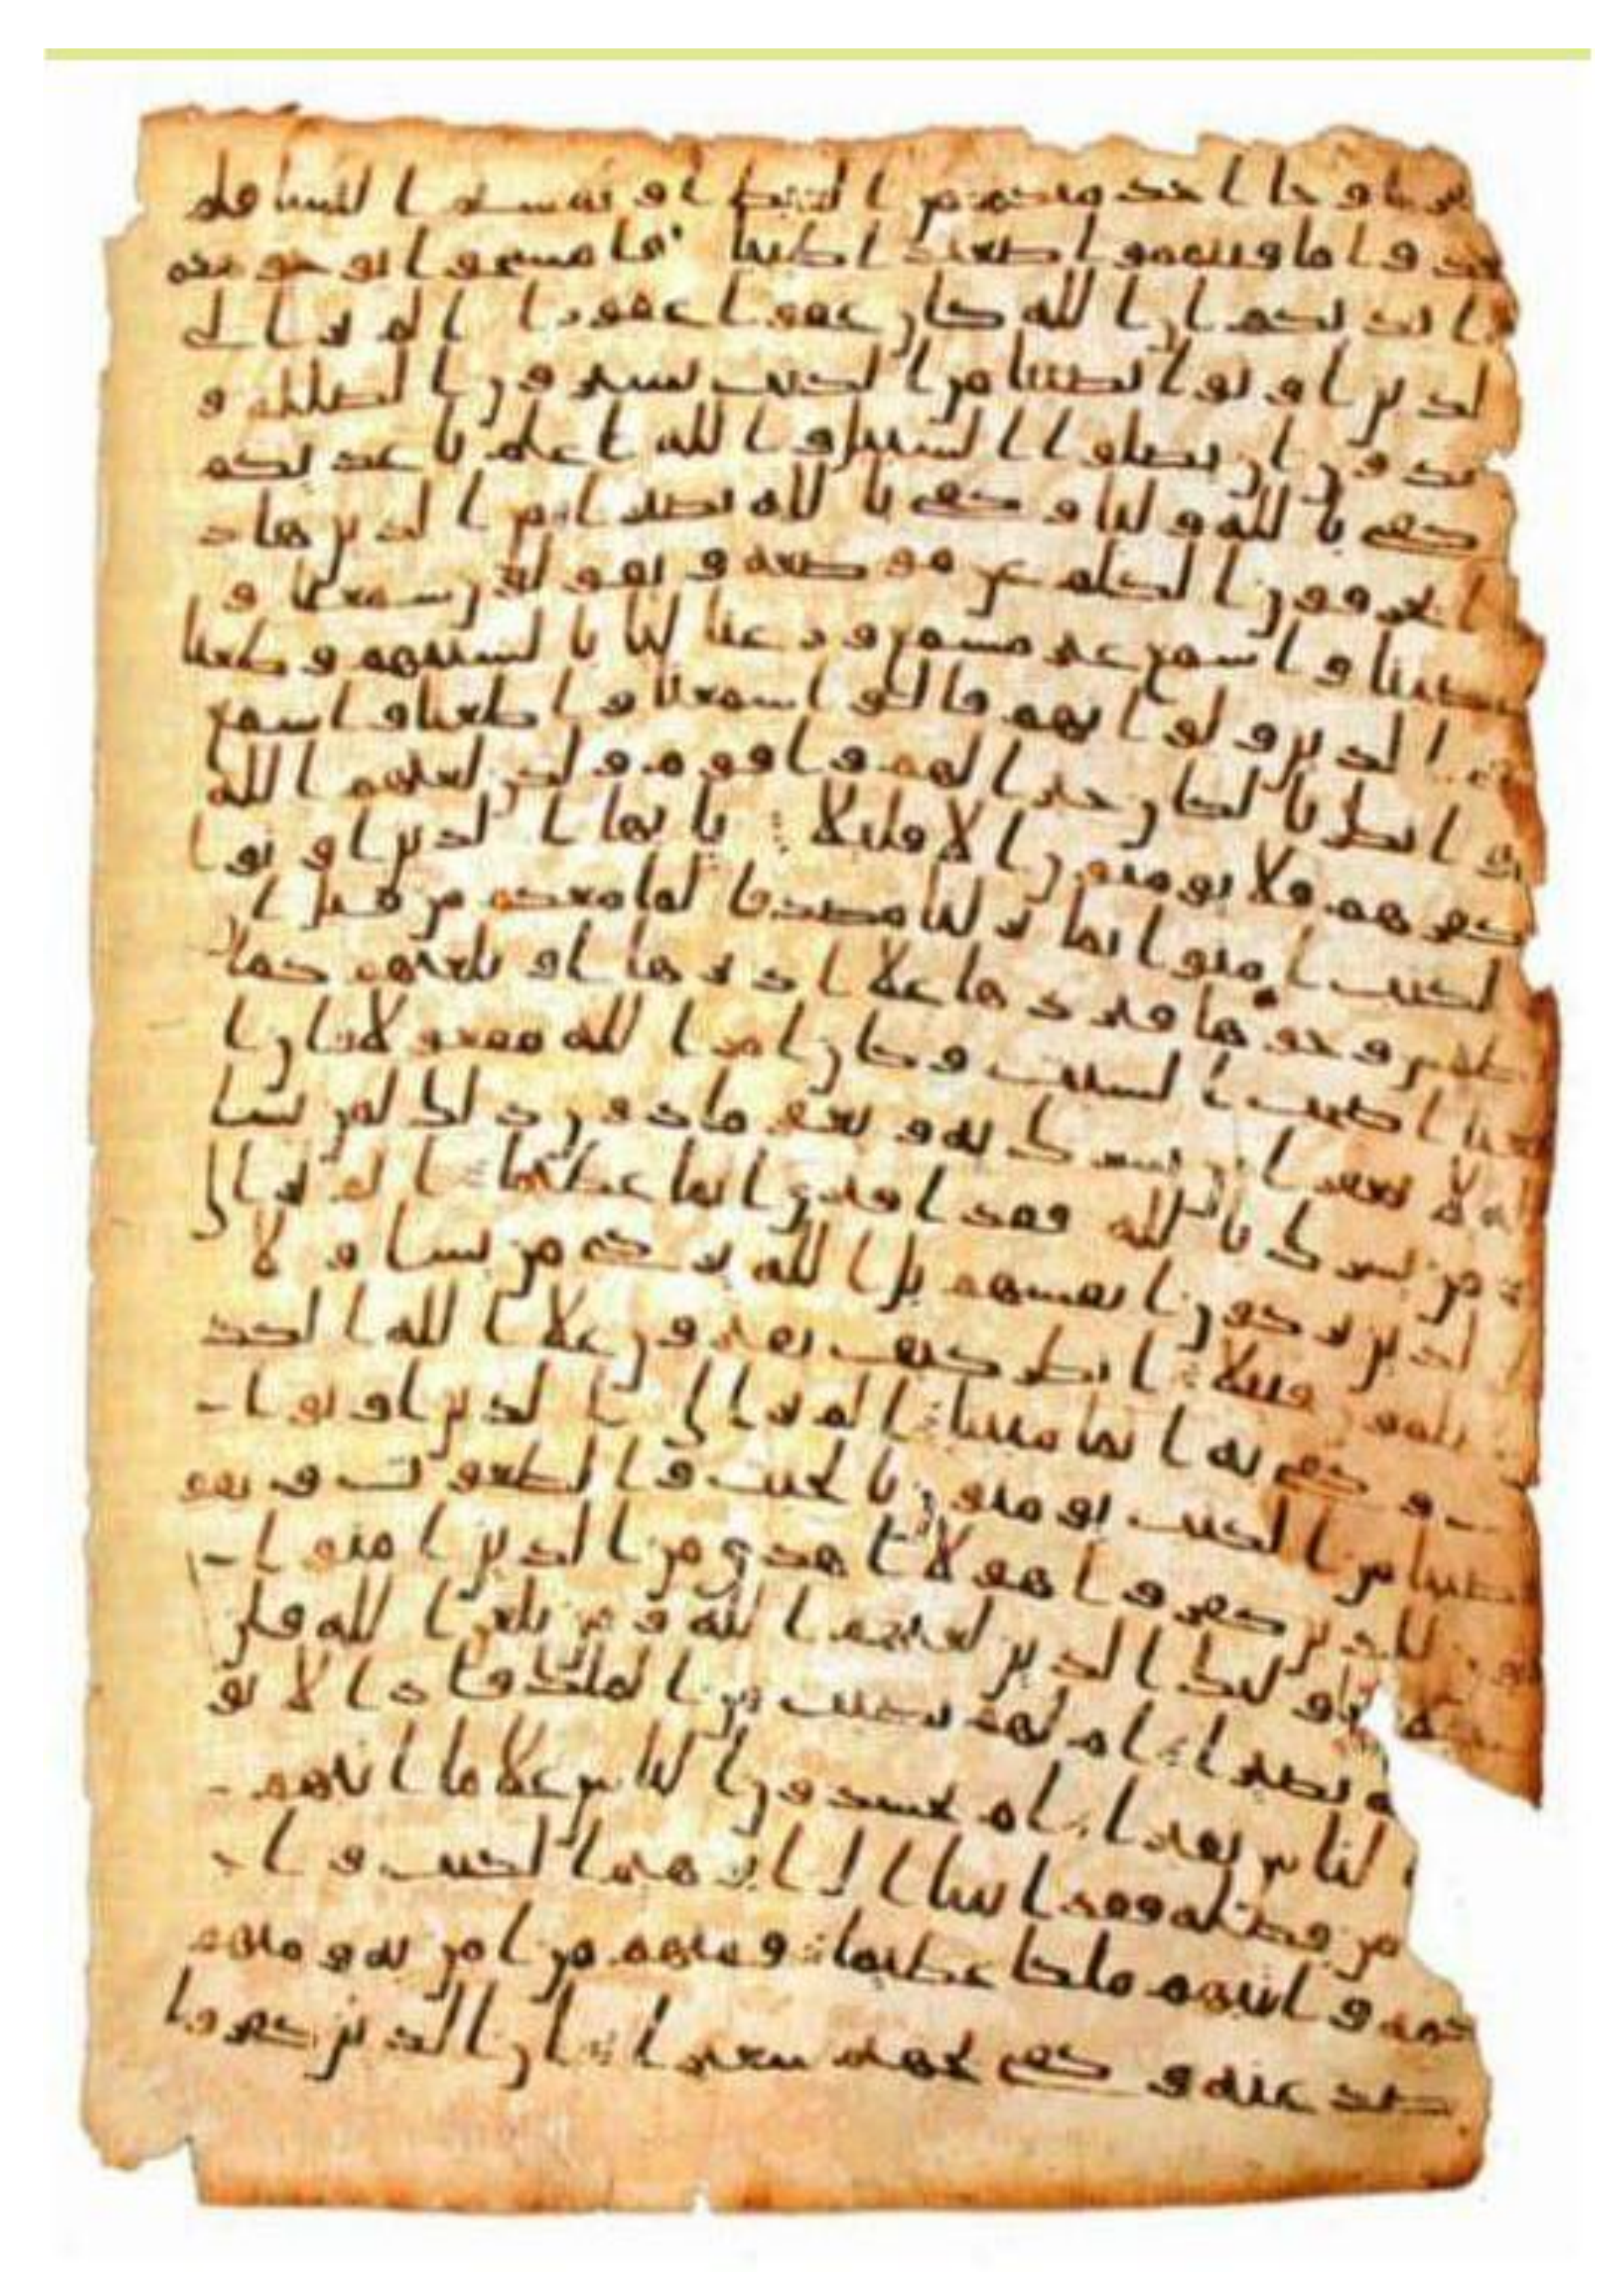 سفر او جا احد منكم من الغيط او لمستم النسا فلم
تجدوا ما فتيمموا صعيدا طيبا فامسحوا بوجوهكم
وايديكم ان الله كان عفوا غفورا الم تر الى ا
لذين اوتوا نصيبا من الكتب يشترون الضللة و
يريدون ان تضلوا السبيل والله اعلم باعدايكم
وكفى بالله وليا وكفى بالله نصيرا من الذين هاد
وا يحرفون الكلم عن موضعه ويقولون سمعنا و
عصينا واسمع غير مسمع ورعنا ليا بالسنتهم وطعنا
في الدين ولو انهم قالوا سمعنا واطعنا واسمع
وانظرنا لكان خيرا لهم واقوم ولكن لعنهم الله
بكفرهم فلا يومنون الا قليلا يايها الذين اوتوا
الكتب امنوا بما نزلنا مصدقا لما معكم من قبل ا
ن نطمس وجوها فنردها علا ادبرها او نلعنهم كما
لعنا اصحب السبت وكان امر الله مفعولا ان ا
لله لا يغفر ان يشرك به ويغفر ما دون ذلك لمن يشا
ومن يشرك بالله فقد افترى اثما عظيما الم تر الى
الذين يزكون انفسهم بل الله يزكي من يشا ولا
يظلمون فتيلا انظر كيف يفترون علا الله الكذ
ب وكفى به اثما مبينا الم تر الى الذين اوتوا
نصيبا من الكتب يومنون بالجبت والطغوت ويقو
لون للذين كفروا هولا اهدى من الذين امنوا
سبيلا اوليك الذين لعنهم الله ومن يلعن الله فلن
تجد له نصيرا ام لهم نصيب من الملك فاذا لا يو
تون الناس نقيرا ام يحسدون الناس علا ما اتيهم
الله من فضله فقد اتينا ال ابرهيم الكتب وا
لحكمة واتينهم ملكا عظيما فمنهم من امن به ومنهم
من صد عنه وكفى بجهنم سعيرا ان الذين كفروا